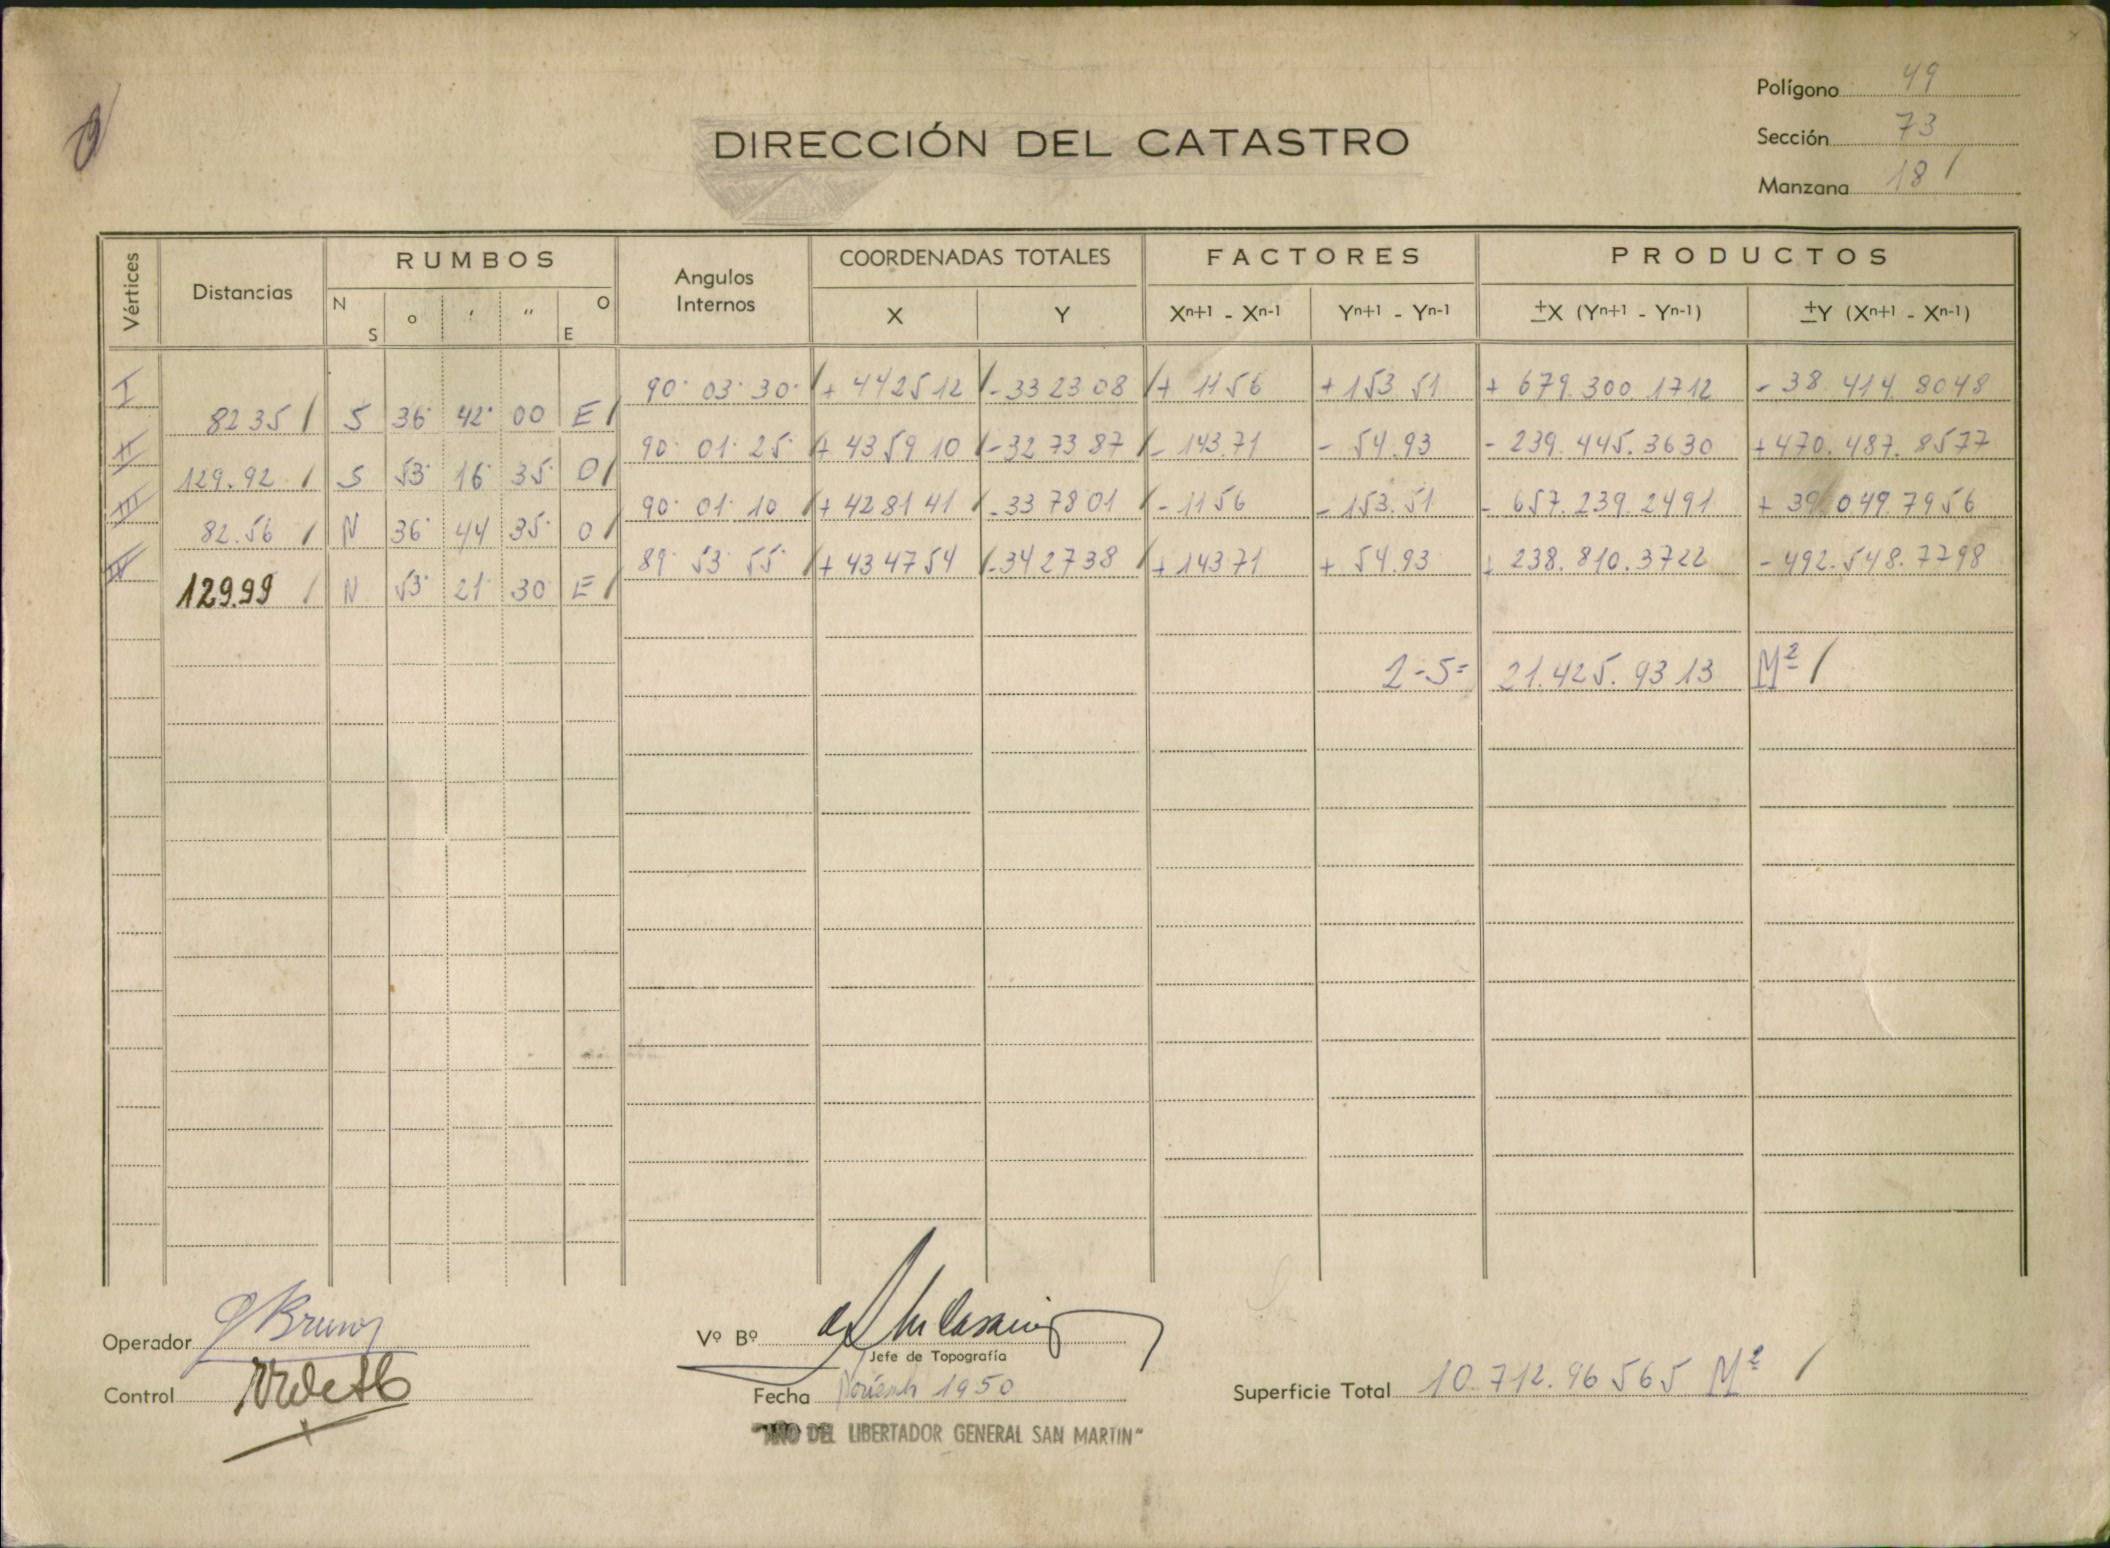 Polígono 49
Sección 73
Manzana 18 /
DIRECCIÓN DEL CATASTRO
Vértices Distancias RUMBOS Angulos Internos COORDENADAS TOTALES FACTORES PRODUCTOS
N S o ' " O E X Y Xn+1 - Xn-1 Yn+1 - Yn-1 ±X (Yn+1 - Yn-1) ±Y (Xn+1 - Xn-1)
I 90° 03' 30" / + 4425 12 / - 33 23 08 / + 11 56 + 153 51 + 679.300.1712 - 38 414 8048
82 35 / S 36° 42' 00 E /
II 90° 01' 25" / + 43 59 10 / - 32 73 87 / - 143.71 - 54.93 - 239.445.3630 + 470.487.8577
129.92 / S 53° 16' 35" O /
III 90° 01' 10 / + 42 81 41 / - 33 78 01 / - 11 56 - 153.51 - 657.239.2491 + 39 049 7956
82.56 / N 36° 44 35" O /
IV 89° 53' 55" / + 43 47 54 / - 34 27 38 / + 143 71 + 54.93 + 238.810.3722 - 492.548.7798
129.99 / N 53° 21' 30 E /
2-S= 21.425.93 13 M² /
Operador Bruno
Control
Vº Bº
Jefe de Topografía
Fecha 1950
"AÑO DEL LIBERTADOR GENERAL SAN MARTIN"
Superficie Total 10.712.96 565 M² /